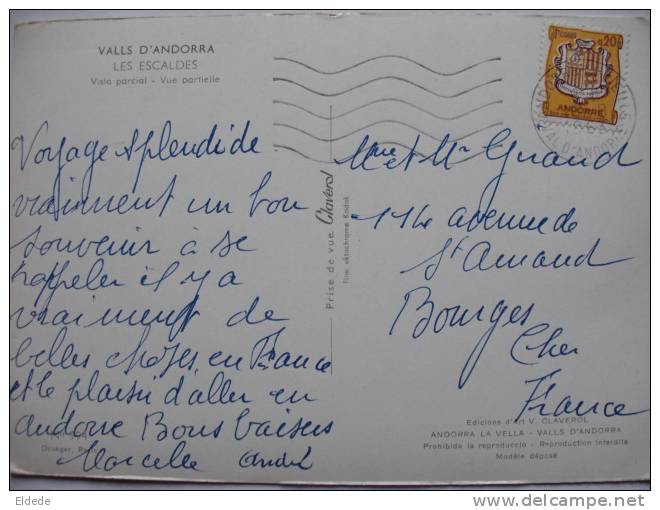 VALLS D'ANDORRA
LES ESCALDES
Vista parcial - Vue partielle
Voyage splendide
vraiment un bon
souvenir à se
rappeler il y a
vraiment de
belles choses en France
et le plaisir d'aller en
andorre Bons baisers
Marcelle André
Draeger, Paris
Prise de vue Claverol
Film ektachrome Kodak
ANDORRE
Mme et Mr Guand
114 avenue de
St Amand
Bourges
Cher
France
Edicions d'Art V. CLAVEROL
ANDORRA LA VELLA - VALLS D'ANDORRA
Prohibida la reproducció - Reproduction interdite
Modèle déposé
Eldede
delcampe.net